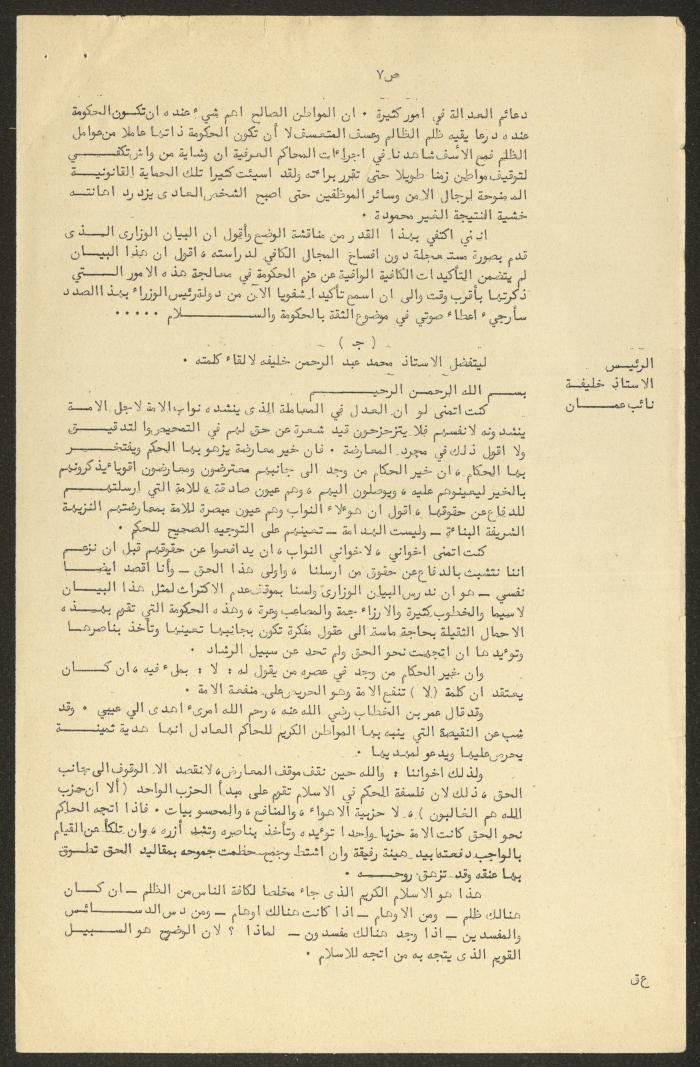 ص٧
دعائم العدالة في امور كثيرة ٠ ان المواطن الصالح اهم شيء عنده ان تكون الحكومة
عنده درعا يقيه ظلم الظالم وعسف المتعسف لا أن تكون الحكومة ذاتها عاملا من عوامل
الظلم فمع الأسف شاهدنا في اجراءات المحاكم العرفية ان وشاية من واش تكفي
لتوقيف مواطن زمنا طويلا حتى تقرر براءته ولقد اسيئت كثيرا تلك الحماية القانونية
الممنوحة لرجال الامن وسائر الموظفين حتى اصبح الشخص العادى يزدرد اهانته
خشية النتيجة الغير محمودة ٠
انني اكتفي بهذا القدر من مناقشة الوضع وأقول ان البيان الوزارى الذى
قدم بصورة مستعجلة دون افساح المجال الكافي لدراسته ، اقول ان هذا البيان
لم يتضمن التأكيدات الكافية الوافية عن عزم الحكومة في معالجة هذه الامور التي
ذكرتها بأقرب وقت والى ان اسمع تأكيدا شفويا الآن من دولة رئيس الوزراء بهذا الصدد
سأرجيء اعطاء صوتي في موضوع الثقة بالحكومة والسلام ٠٠٠٠٠
( جـ )
الرئيس ليتفضل الاستاذ محمد عبد الرحمن خليفه لالقاء كلمته ٠
الاستاذ خليفة
نائب عمان بسم الله الرحمن الرحيم
كنت اتمنى لو ان العدل في المعاملة الذى ينشده نواب الامة لاجل الامة
ينشدونه لانفسهم فلا يتزحزحون قيد شعرة عن حق لهم في التمحيص والتدقيق
ولا اقول ذلك في مجرد المعارضة ٠ فان خير معارضة يزهو بها الحكم ويفتخر
بها الحكام ، ان خير الحكام من وجد الى جانبهم معترضون ومعارضون اقوياء يذكرونهم
بالخير ليعينوهم عليه ، ويوصلون اليهم ، وهم عيون صادقة ، للامة التي ارسلتهم
للدفاع عن حقوقها ، اقول ان هوءلاء النواب وهم عيون مبصرة للامة بمعارضتهم النزيهة
الشريفة البناءة ــ وليست الهدامة ــ تعينهم على التوجيه الصحيح للحكم ٠
كنت اتمنى اخواني ، لاخواني النواب ، ان يدافعوا عن حقوقهم قبل ان نزعم
اننا نتشبث بالدفاع عن حقوق من ارسلنا ، واولى هذا الحق ــ وأنا اقصد ايضا
نفسي ــ هو ان ندرس البيان الوزارى ولسنا بموقف عدم الاكتراث لمثل هذا البيان
لاسيما والخطوب كثيرة والارزاء جمة والمصاعب وعرة ، وهذه الحكومة التي تقوم بهذه
الاحمال الثقيلة بحاجة ماسة الى عقول مفكرة تكون بجانبها تعينها وتأخذ بناصرها
وتوءيدها ان اتجهت نحو الحق ولم تحد عن سبيل الرشاد ٠
وان خير الحكام من وجد في عصره من يقول له : لا : بملء فيه ، ان كان
يعتقد ان كلمة (لا ) تنفع الامة وهو الحريص على منفعة الامة ٠
وقد قال عمر بن الخطاب رضي الله عنه ، رحم الله امرىء اهدى الي عيبي ٠ وقد
عن النقيصة التي ينبه بها المواطن الكريم للحاكم العادل انها هدية ثمينة
يحرص عليها ويدعو لمهديها ٠
ولذلك اخواننا : والله حين نقف موقف المعارض ، لا نقصد الا الوقوف الى جانب
الحق ، ذلك لان فلسفة الحكم في الاسلام تقوم على مبدأ الحزب الواحد ( ألا ان حزب
الله هم الغالبون ) ، لا حزبية الاهواء ، والمنافع ، والمحسوبيات ٠ فاذا اتجه الحاكم
نحو الحق كانت الامة حزبا واحدا توءيده وتأخذ بناصره وتشد أزره ، وان تلكأ عن القيام
بالواجب دفعته بيد هينة رفيقة وان اشتط حطمت جموحه بمقاليد الحق تطوق
بها عنقه وقد تزهق روحه ٠
هذا هو الاسلام الكريم الذى جاء مخلصا لكافة الناس من الظلم ــ ان كان
هنالك ظلم ــ ومن الاوهام ــ اذا كانت هنالك اوهام ــ ومن دس الدسائس
والمفسدين ــ اذا وجد هنالك مفسدون ــ لماذا ؟ لان الوضوح هو السبيل
القويم الذى يتجه به من اتجه للاسلام ٠
ع ق